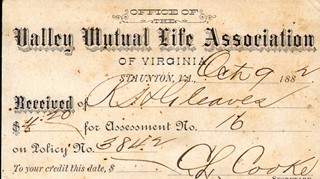 OFFICE OF
Valley Mutual Life Association
OF VIRGINIA,
STAUNTON, VA., Oct 9 1882
Received of R. H. Gleaves
$4.20 for Assessment No. 16
on Policy No. 3842
To your credit this date, $ CL Cooke
SECRETARY.